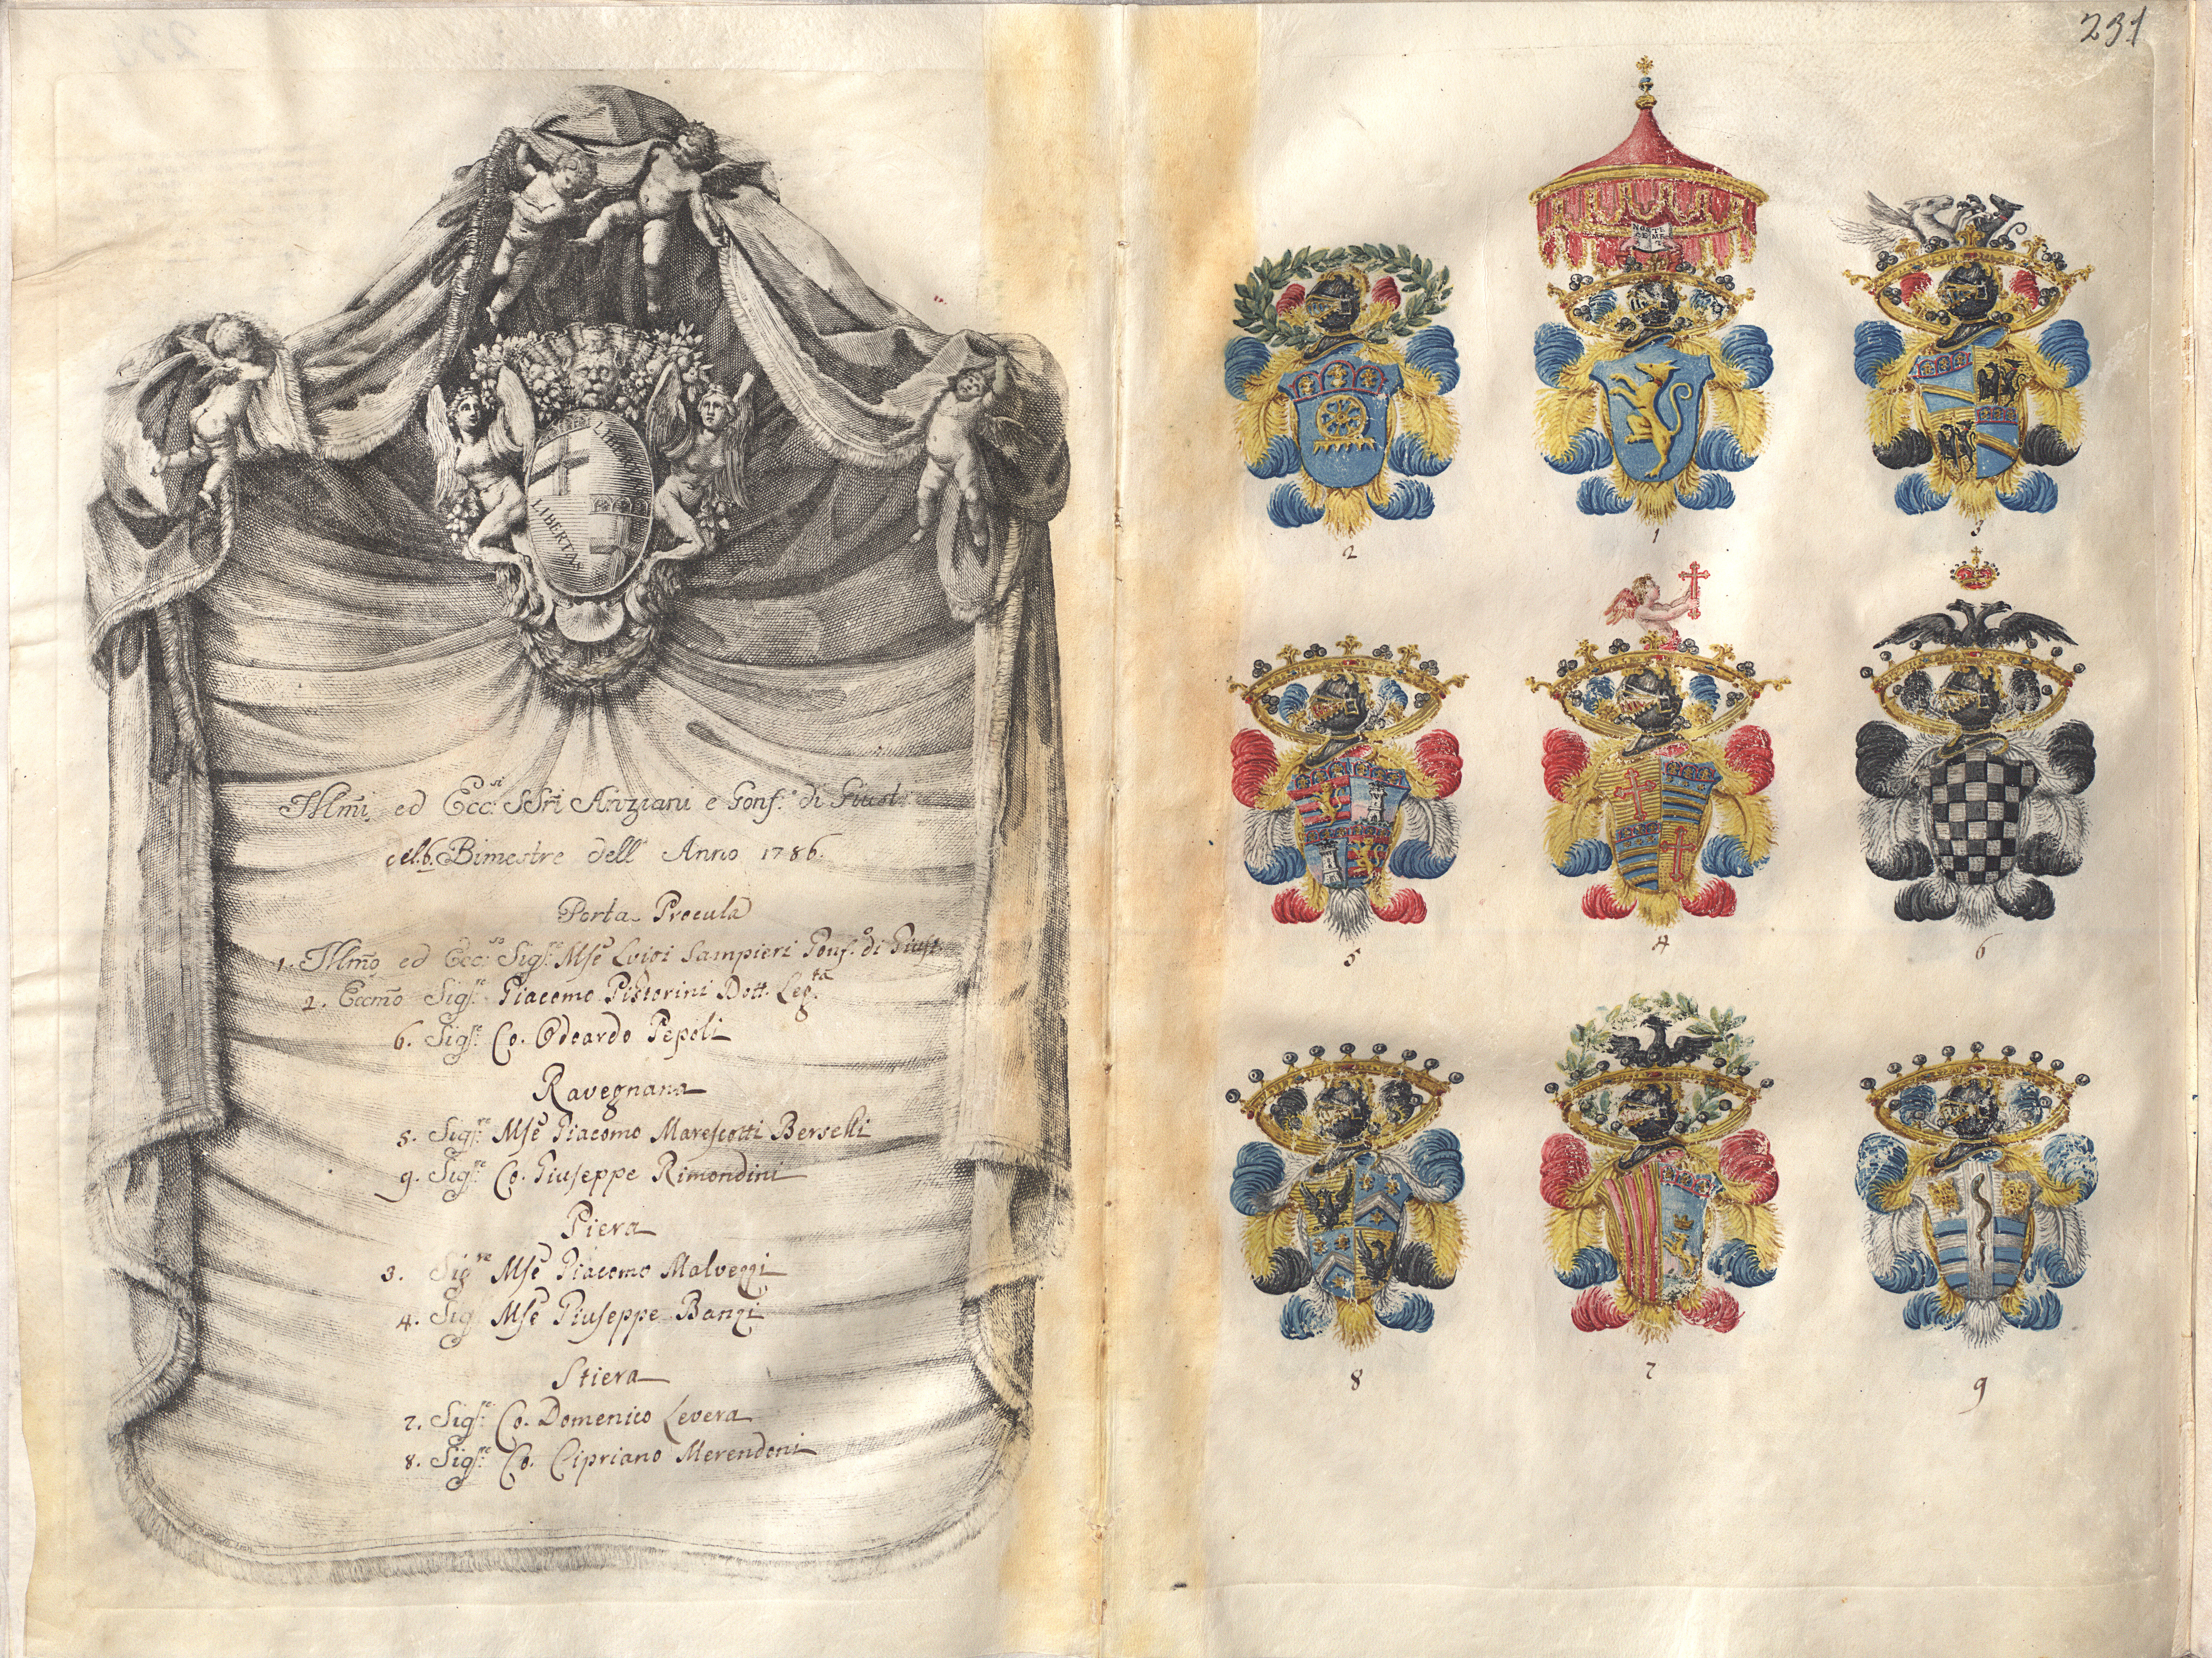 231
LIBERTAS
LIBERTAS
Illmi. ed Ecc.si SSri Anziani e Gonf.o di Giust.
del 6. Bimestre dell' Anno 1786.
Porta Procula
1. Illmo ed Ecc.so Sig.re Mse Luigi Sampieri Gonf.o di Giust.
2. Eccmo Sig.re Giacomo Pistorini Dott. Leg.ta
6. Sig.re Co. Odoardo Pepoli
Ravegnana
5. Sig.re Mse Giacomo Marescotti Berselli
9. Sig.re Co. Giuseppe Rimondini
Piera
3. Sig.re Mse Giacomo Malvezzi
4. Sig. Mse Giuseppe Banzi
Stiera
7. Sig.re Co. Domenico Levera
8. Sig.re Co. Cipriano Merendoni
2
1
3
5
4
6
8
7
9